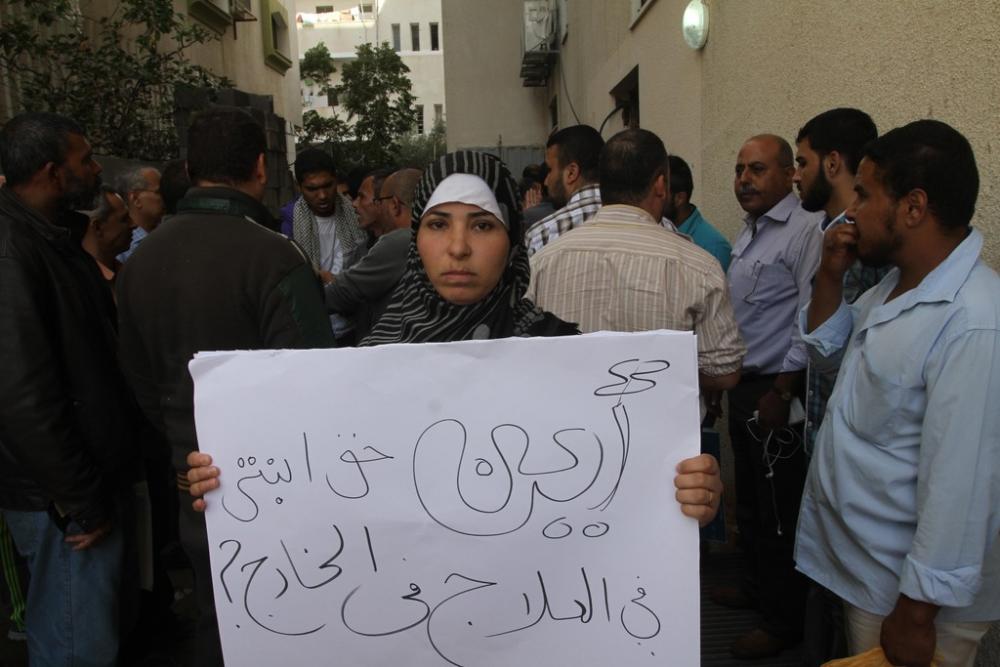 أين حق ابنتي
في العلاج في الخارج؟